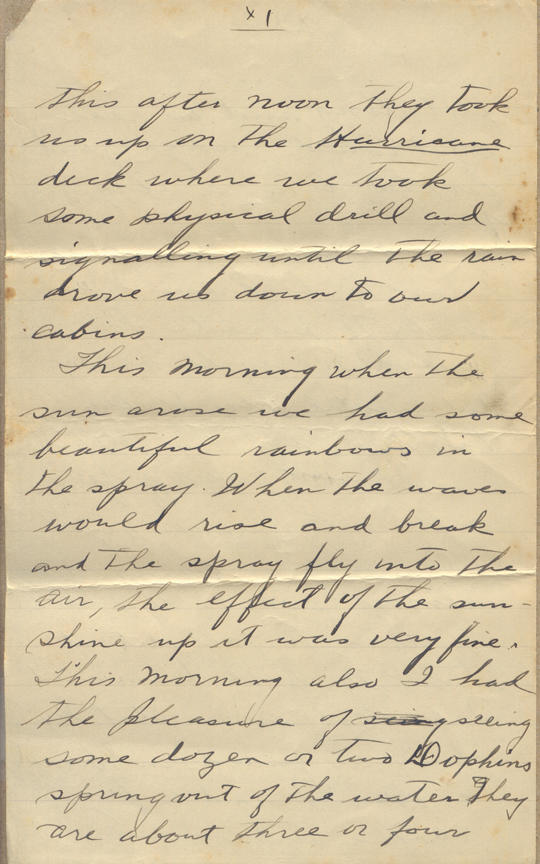 XI
this after noon they took
us up on the Hurricane
deck where we took
some physical drill and
signalling until the rain
drove us down to our
cabins.
This morning when the
sun arose we had some
beautiful rainbows in
the spray. When the waves
would rise and break
and the spray fly into the
air, the effect of the sun-
shine up it was very fine.
This morning also I had
the pleasure of seeing
some dozen or two Dophins
spring out of the water They
are about three or four